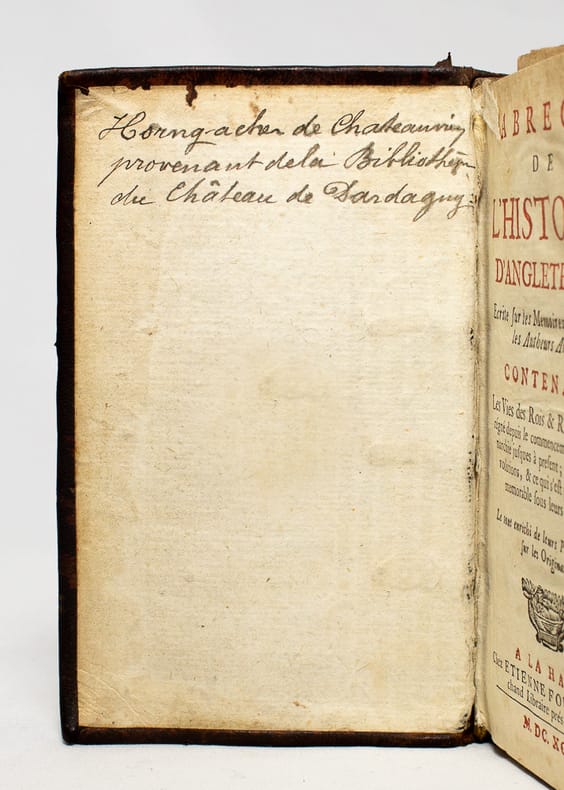 Horngacher de Chateauvieu
provenant de la Bibliothèque
du Château de Dardagny
ABREG
DE
L'HISTO
D'ANGLETE
Ecrite sur les Memoires
les Autheurs A
CONTEN
Les Vies des Rois & R
regné depuis le commencem
narchie jusques à present;
volutions, & ce qui s'est
memorable sous leurs
Le tout enrichi de leurs P
sur les Origina
A LA HA
Chez ETIENNE FOU
chand Libraire prés
M. DC. XC